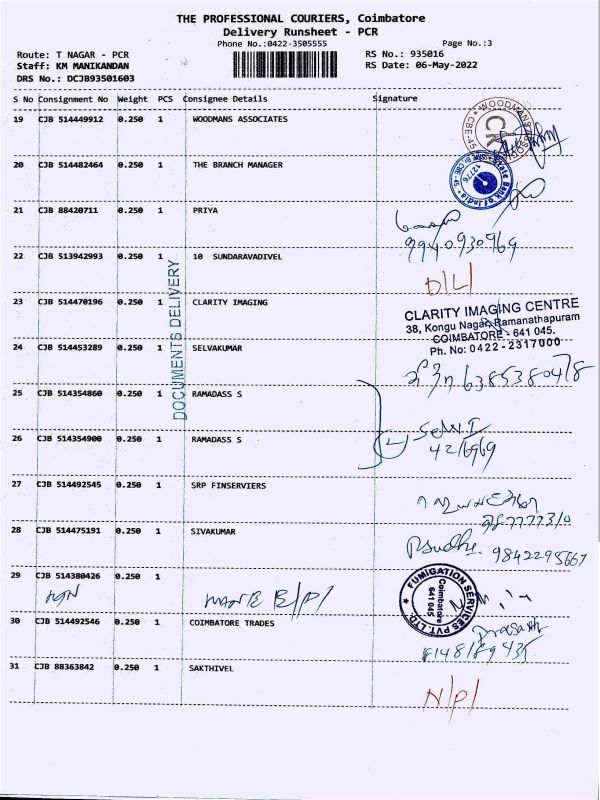 THE PROFESSIONAL COURIERS, Coimbatore
Delivery Runsheet - PCR
Phone No.:0422-3505555
Page No.:3
Route: T NAGAR - PCR
RS No.: 935016
Staff: KM MANIKANDAN
RS Date: 06-May-2022
DRS No.: DCJB93501603
S No Consignment No Weight PCS Consignee Details Signature
19 CJB 514449912 0.250 1 WOODMANS ASSOCIATES
20 CJB 514482464 0.250 1 THE BRANCH MANAGER
State Bank of India
12776
21 CJB 88420711 0.250 1 PRIYA
9940930969
22 CJB 513942993 0.250 1 10 SUNDARAVADIVEL
D/L/
DOCUMENTS DELIVERY
23 CJB 514470196 0.250 1 CLARITY IMAGING
CLARITY IMAGING CENTRE
38, Kongu Nagar, Ramanathapuram
COIMBATORE - 641 045.
Ph. No: 0422 - 2317000
24 CJB 514453289 0.250 1 SELVAKUMAR
6385380478
25 CJB 514354860 0.250 1 RAMADASS S
26 CJB 514354900 0.250 1 RAMADASS S
27 CJB 514492545 0.250 1 SRP FINSERVIERS
28 CJB 514475191 0.250 1 SIVAKUMAR
9842295667
29 CJB 514380426 0.250 1
FUMIGATION SERVICES PVT. LTD.
Coimbatore
641 045
30 CJB 514492546 0.250 1 COIMBATORE TRADES
Prasath
8148189435
31 CJB 88363842 0.250 1 SAKTHIVEL
N/P/